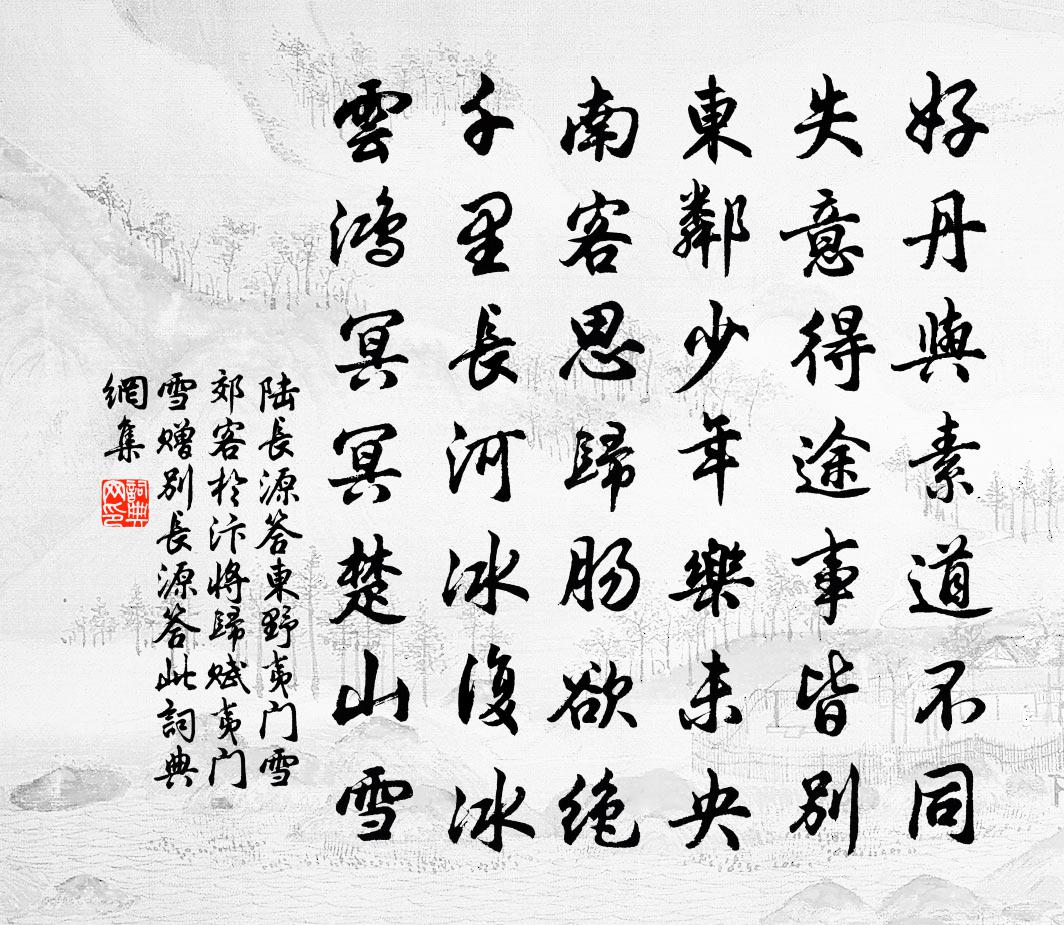 好丹與素道不同
失意得途事皆別
東鄰少年樂未央
南客思歸腸欲絕
千里長河冰復冰
雲鴻冥冥楚山雪
陆長源答東野夷门雪
郊客於汴將歸賦夷门
雪赠别長源答此詞典
網集
詞典
网印